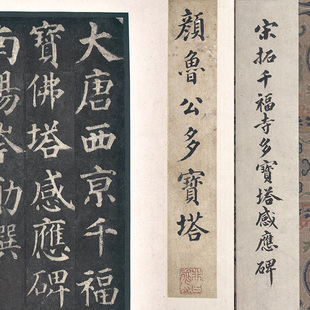 宋拓千福寺多寶塔感應碑
顏魯公多寶塔
大唐西京千福
寶佛塔感應碑
南陽岑勛撰